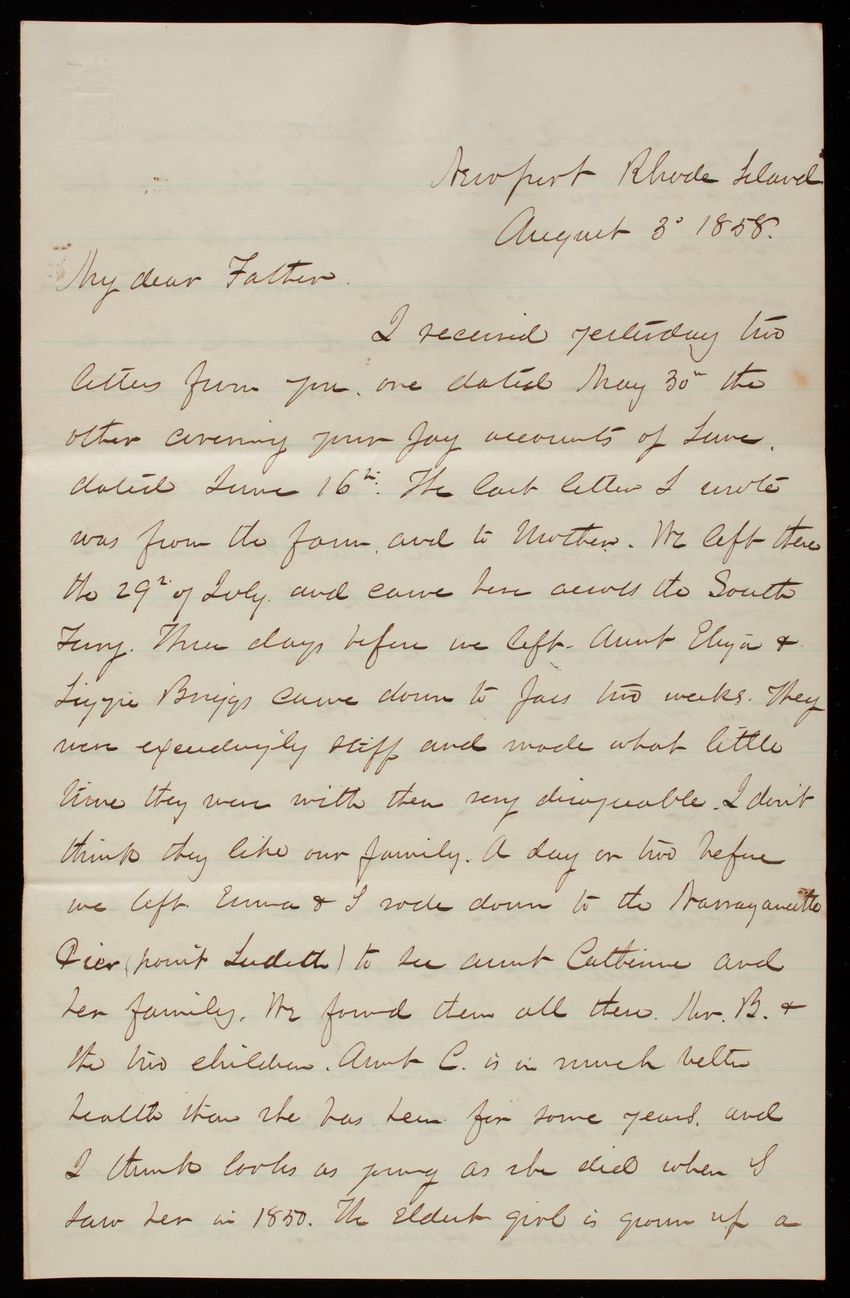 Newport Rhode Island
August 3d 1858.
My dear Father.
I received yesterday two
letters from you, one dated May 30th the
other covering your pay accounts of June,
dated June 16th. The last letter I wrote
was from the farm, and to Mother. We left there
the 29th of July, and came here across the South
Ferry. Three days before we left Aunt Eliza &
Lizzie Briggs came down to pass two weeks. They
were exceedingly stiff and made what little
time they were with them very disagreeable. I don't
think they like our family. A day or two before
we left Emma & I rode down to the Narragansette
Pier (point Judeth) to see aunt Catherine and
her family. We found them all there. Mr. B. &
the two children. Aunt C. is in much better
health than she has been for some years, and
I think looks as young as she did when I
saw her in 1850. The eldest girl is grown up a